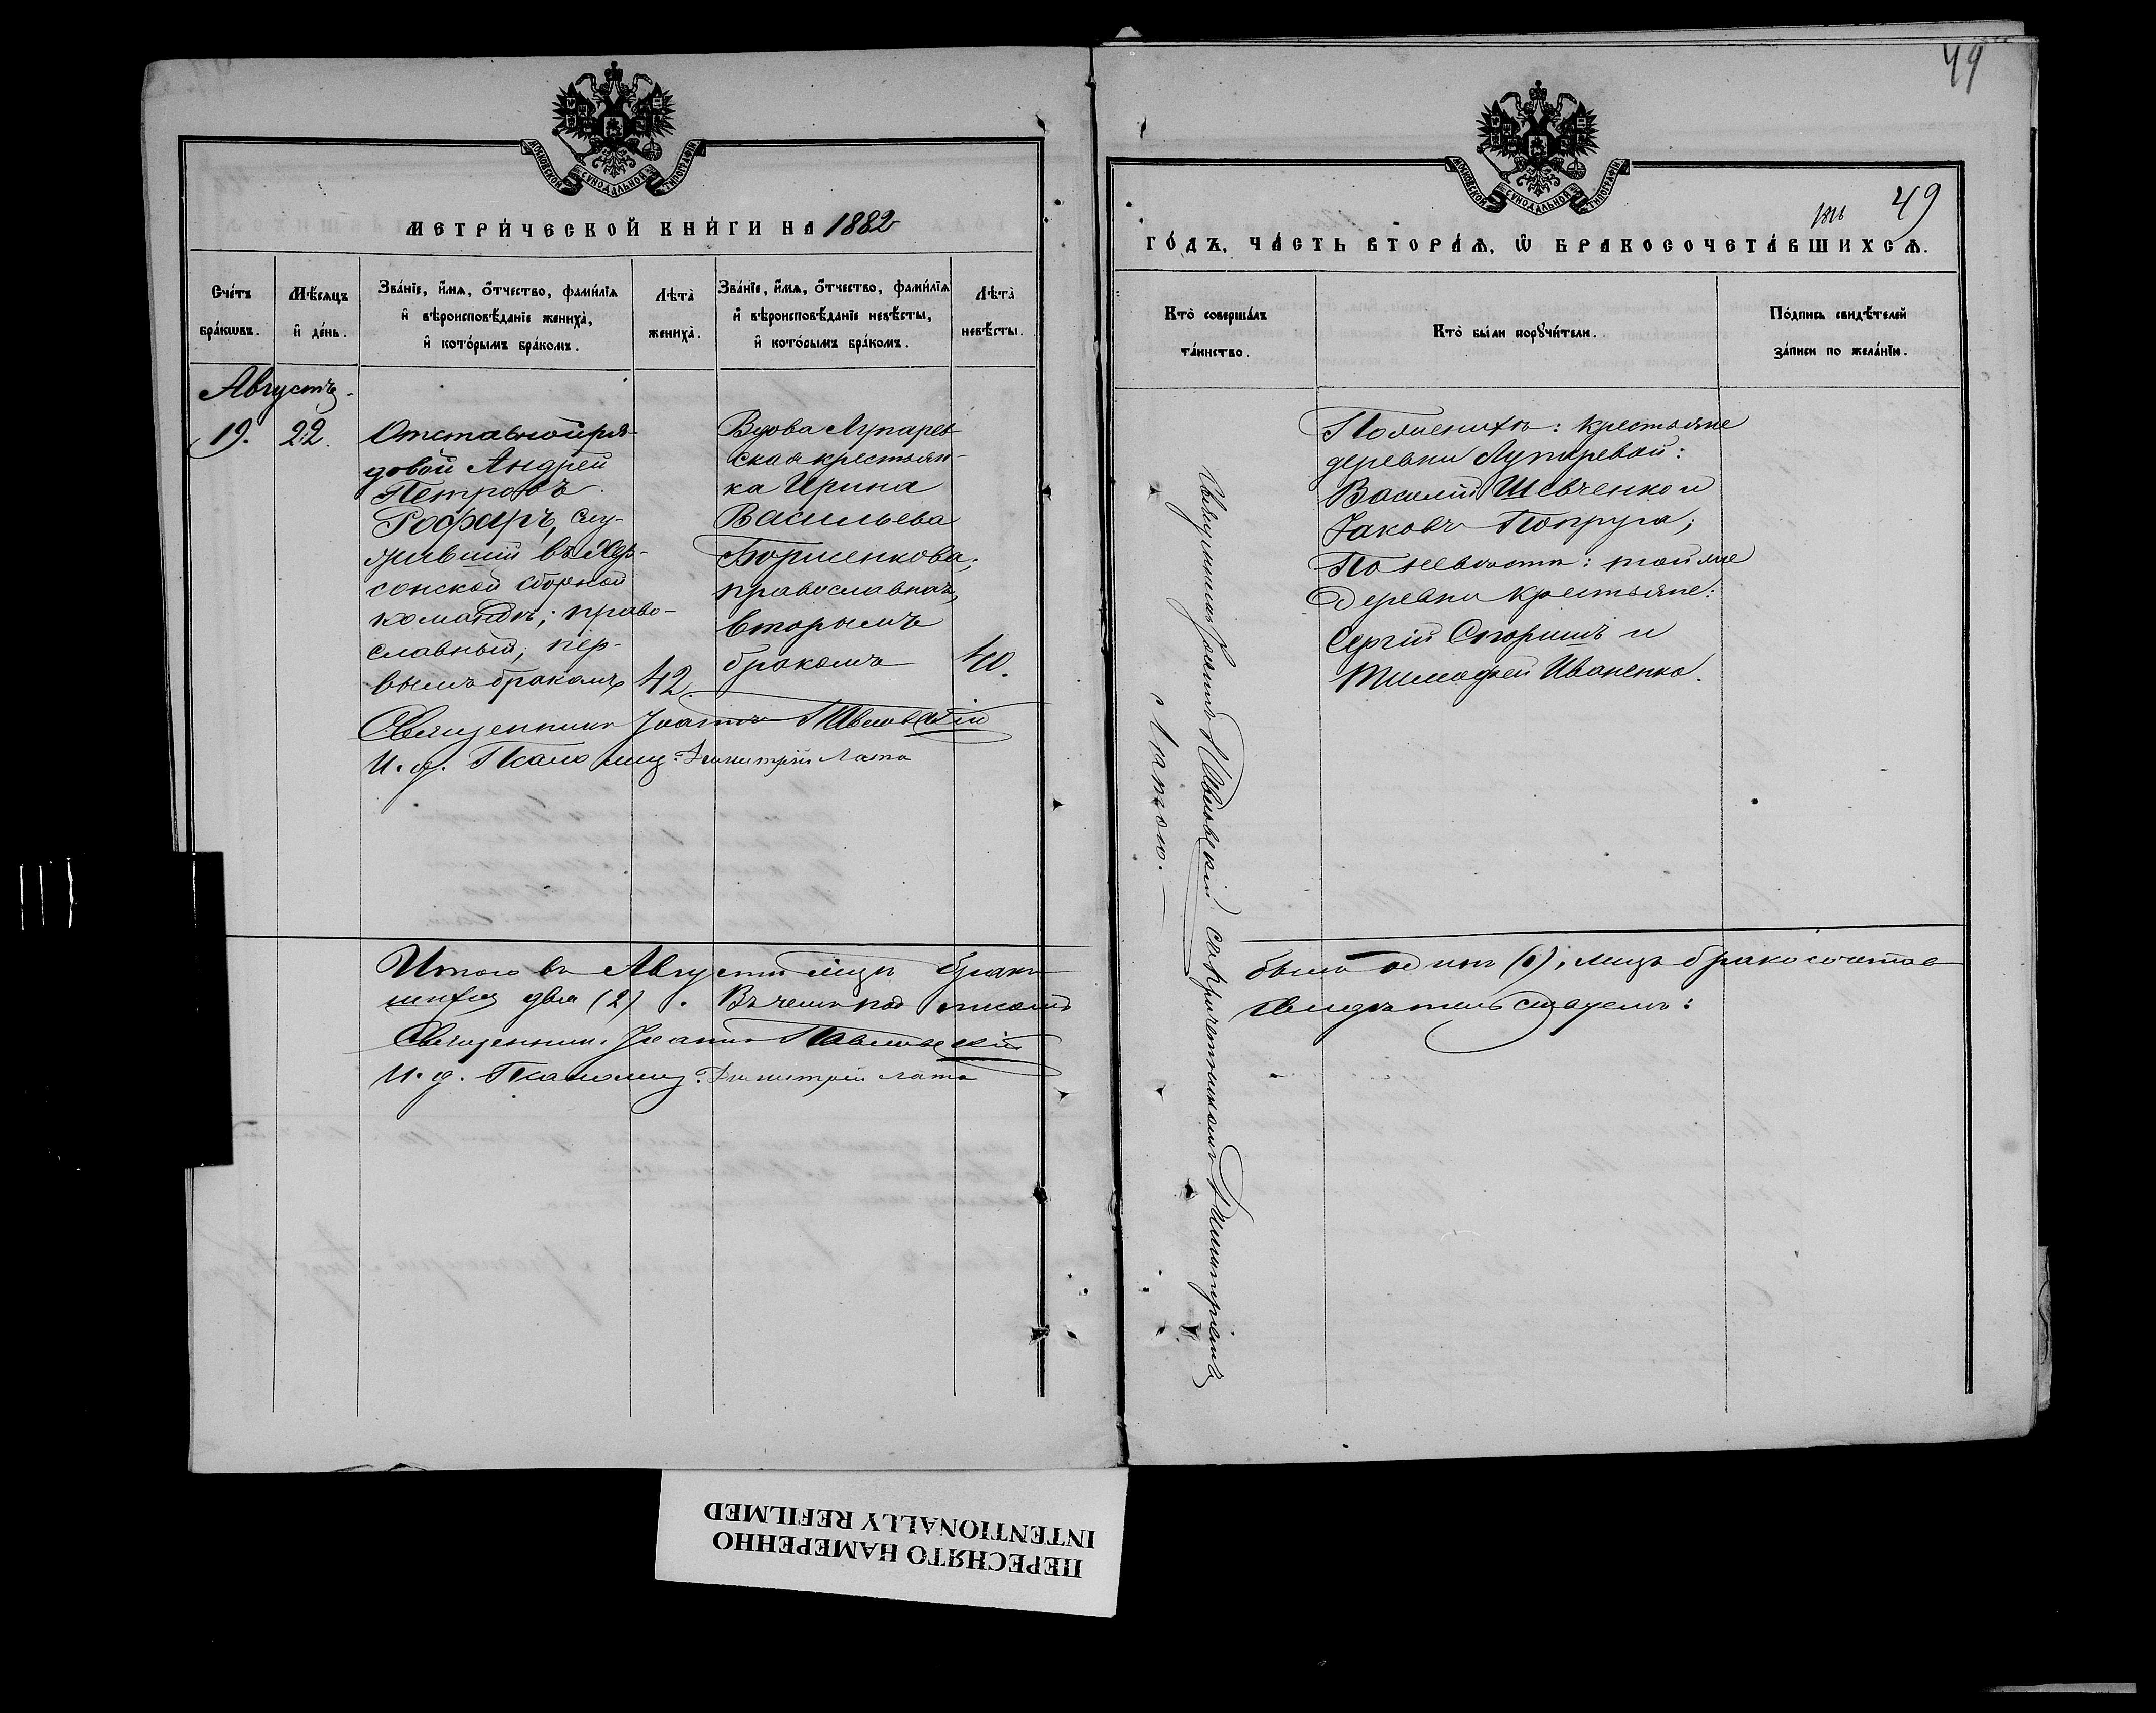 49
МОСКОВСКОЙ СУНОДАЛЬНОЙ ТИПОГРАФІИ
МЕТРИ́ЧЕСКОЙ КНИ́ГИ НА 1882
Сче́тъ бра́кѡвъ.
Мѣ́сяцъ и҆ де́нь.
Зва́нїе, и҆́мѧ, ѻ҆́тчество, фами́лїѧ и҆ вѣроисповѣ́данїе жениха̀, и҆ кото́рымъ бра́комъ.
Лѣ́та̀ жениха̀.
Зва́нїе, и҆́мѧ, ѻ҆́тчество, фами́лїѧ и҆ вѣроисповѣ́данїе невѣ́сты, и҆ кото́рымъ бра́комъ.
Лѣ́та̀ невѣ́сты.
Августъ.
19.
22.
Отставной ря-
довой Андрей
Петровъ
Рофаръ, слу-
жившій въ Хер-
сонской сборной
командѣ; право-
славный, пер-
вымъ бракомъ
42.
Вдова Лупарев
ская крестьян-
ка Ирина
Васильева
Борисенкова,
православная,
вторымъ
бракомъ
40.
Священникъ Іоаннъ Павловскій
И. д. Псаломщ. Димитрій Лапа
Итого въ Августѣ мцѣ брако
шихся два (2). Въ чемъ под писомъ
Священник. Іоаннъ Павловскій
И. д. Псаломщ. Димитрій Лапа
МОСКОВСКОЙ СУНОДАЛЬНОЙ ТИПОГРАФІИ
49
ГО́ДЪ, ЧА́СТЬ ВТОРА́Ѧ, Ѡ҆ БРАКОСОЧЕТА́ВШИХСѦ.
Кто̀ соверша́лъ та́инство.
Кто̀ бы́ли порꙋчи́тели.
По́дпись свидѣ́телей за́писи по жела́нїю.
Священникъ Іоаннъ Павловскій съ причетникомъ Димитріемъ
Лапою.
По женихѣ: крестьяне
деревни Лупаревой:
Василій Шевченко и
Іаковъ Попруга;
По невѣстѣ: той же
деревни крестьяне:
Сергій Спориш и
Тимофей Иваненко.
было одинъ (1), лицъ бракосочетав
свидѣтельствуемъ:
ПЕРЕСНЯТО НАМЕРЕННО
INTENTIONALLY REFILMED